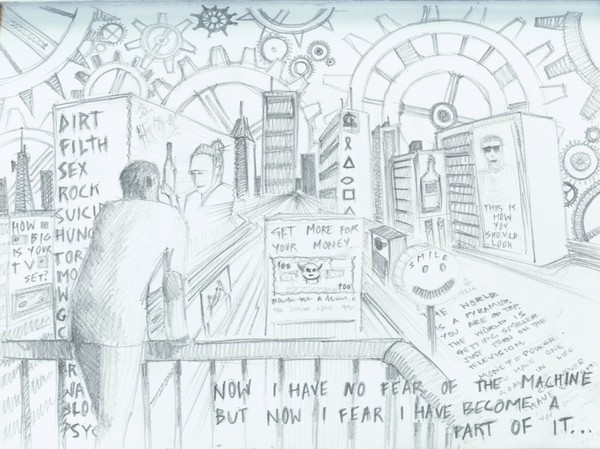 DIRT
FILTH
SEX
ROCK
SUICI
HUNG
TOR
MO
W
G
C
R
WA
BLO
PSYC
HOW
BIG
IS YOUR
TV
SET?
GET MORE FOR
YOUR MONEY
100
100
THIS IS
HOW
YOU
SHOULD
LOOK
SMILE
THE WORLD
IS A PYRAMID
YOU ARE ON TOP
THE WORLD IS
GETTING SMALLER
JUST TURN ON THE
TELEVISION
MONEY & POWER
HAVE ONE
IN LIFE
NEVER
HAVE
NOW I HAVE NO FEAR OF THE MACHINE
BUT NOW I FEAR I HAVE BECOME A
PART OF IT...